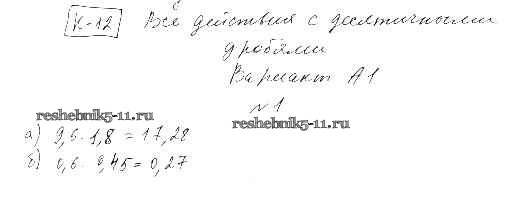 К-12 Все действия с десятичными
дробями
Вариант А1
№1
reshebnik5-11.ru
reshebnik5-11.ru
а) 9,6 · 1,8 = 17,28
б) 0,6 · 0,45 = 0,27